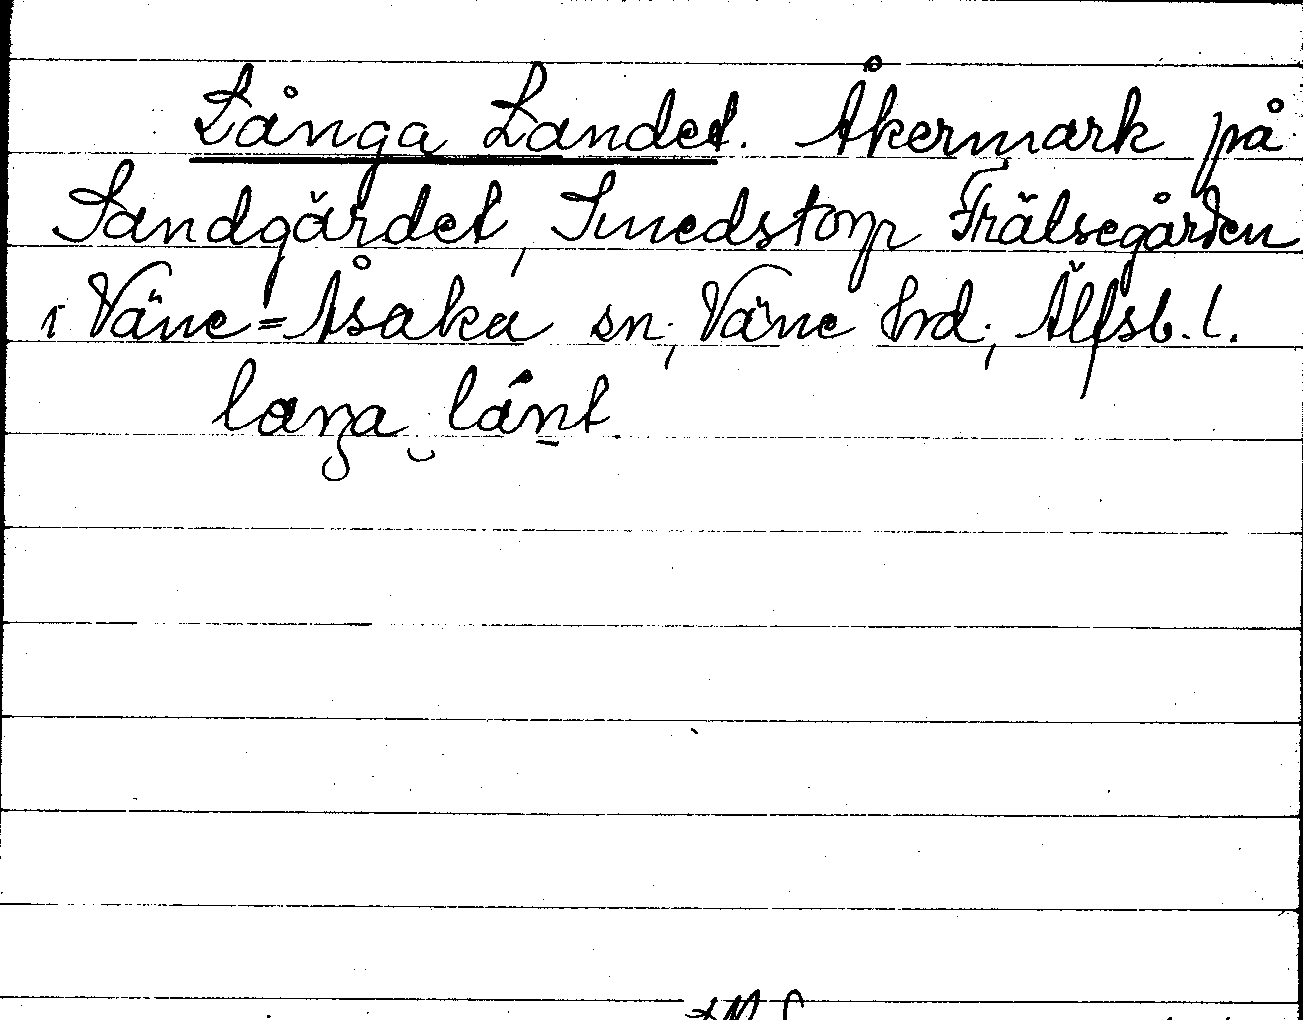 Långa Landet. Åkermark på
Sandgärdet, Smedstorp Frälsegården
i Väne-Åsaka sn; Väne hrd; Älfsb. l.